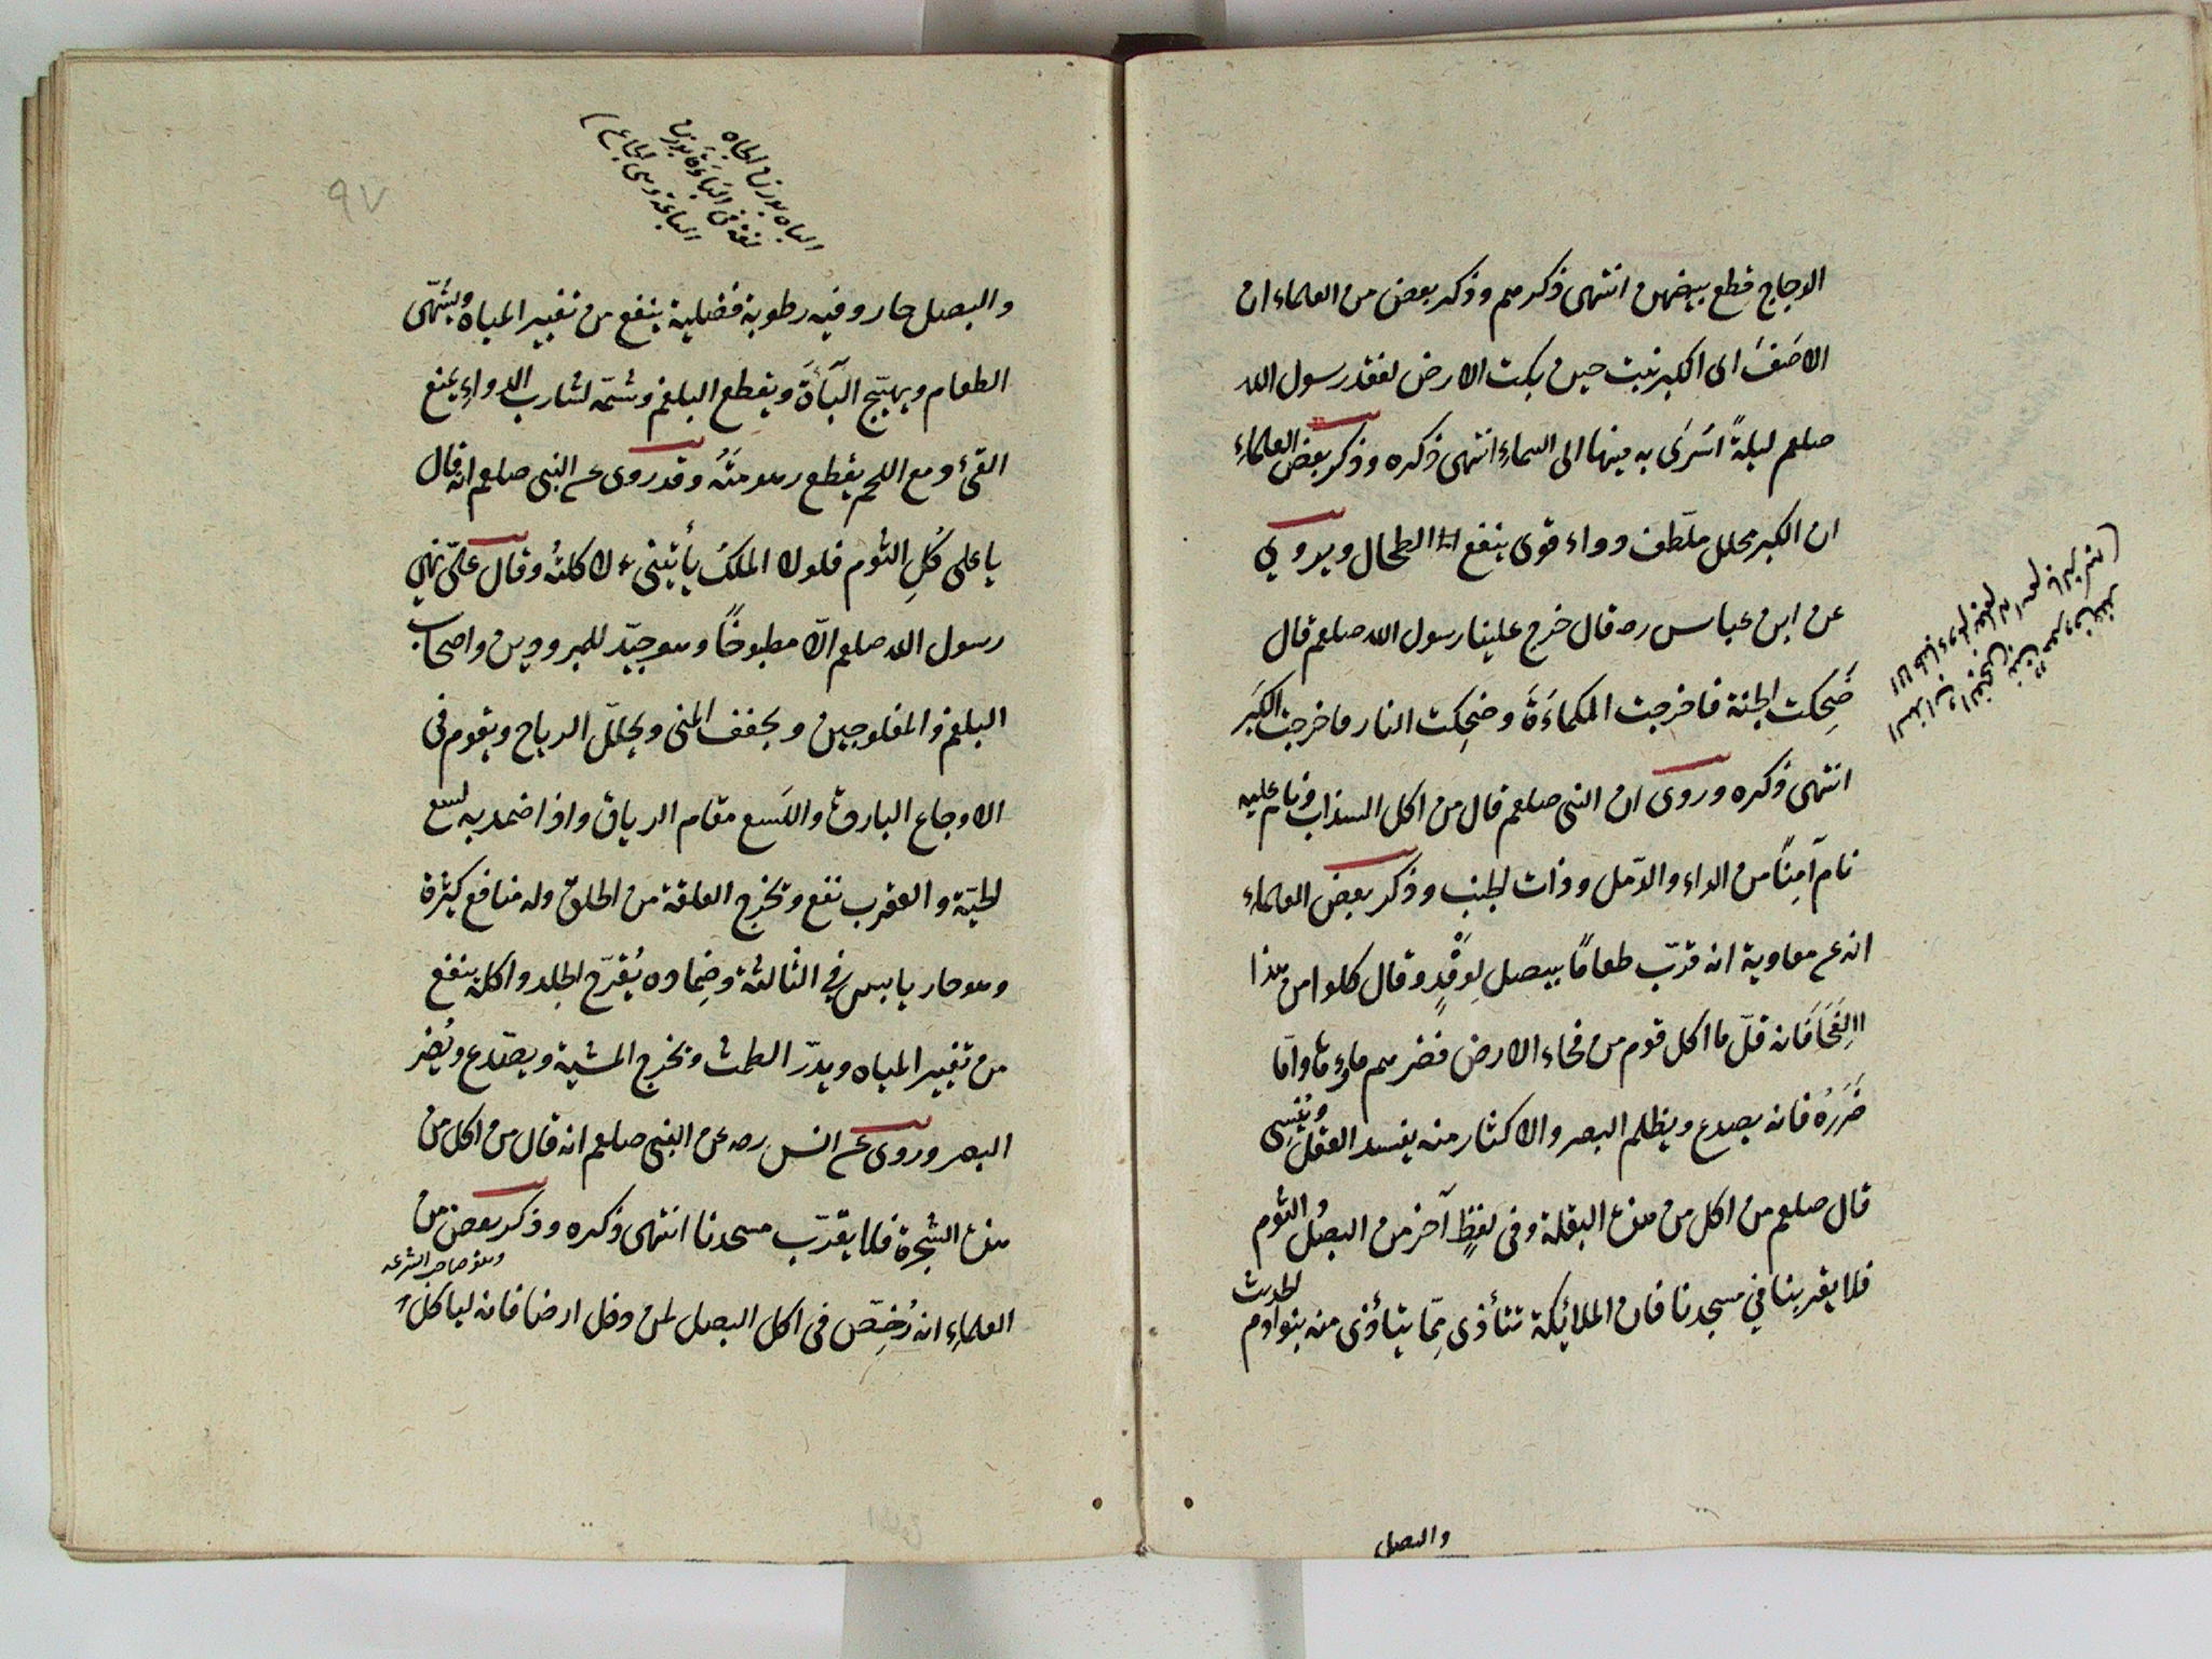 الدجاج قطع بيضهن انتهى ذكرهم وذكر بعض من العلماء ان
الاصَفَ اى الكبر نبت حين بكت الارض لفقد رسول الله
صلعم ليلةً اسْرَى به مينها الى السماءِ انتهى ذكره وذكر بعض العلماءِ
ان الكبر محلل ملطف دواء قوى ينفع الطحال ويروي
عن ابن عباس رض قال خرج علينا رسول الله صلعم قال
ضَحِكت الجنة فاخرجت الكماءَةَ وضحِكت النار فاخرجت الكَبَر
انتهى ذكره وروى ان النبى صلعم قال من اكل السذاب ونام عليه
نام آمِنًا من الداء والدّمل وذات الجنب وذكر بعض العلماء
انه عن معاوية انه قدّب طعامًا ببصل لِوَفْدٍ وقال كلوا من هذا
الفِحَا فَانه قلّ ما اكل قوم من فحاء الارض فضرهم ماؤها وامّا
ضَرَرُه فانه يصدع ويظلم البصر والاكثار منه يفسد العقل ويُنْسِى
قال صلعم من اكل من هذه البقلة وفى لفظٍ آخر من البصل والثوم
فلا يقربنا في مسجدنا فان الملائيكة تتأذى مِمّا يتأذى منه بنو ادم الحديث
والبصل
الباه بوزن الجاه
لغة فى الباءَة بوزن
الباعة وهى الجماع
٩٧
والبصل حار وفيه رطوبة فضلية ينفع من تغيير المياه ويشَهّى
الطعام ويهيّج البآءَة ويقطع البلغم وشمّه لشارب الدواءِ يمنع
القئ ومع اللحم يقطع رهومَتَهُ وقد روى عن النبى صلعم انه قال
يا على كُلِ الثوم فلولا الملكُ يأتينى لاكلتُه وقال علىّ نهى
رسول الله صلعم الّا مطبوخًا وهو جيّد للمبرودين واصحاب
البلغم والمفلوجين ويجفف المنى ويحلّل الرياح ويقوم فى
الاوجاع الباردة واللَسع مقام الدرياق واذا ضمد به لسع
الحيّة والعقرب نفع وتخرج العلقة من الحلق وله منافع كثيرة
وهو حار يابس في الثالثة وضِماده يُقرّح الجلد واكله ينفع
من تغيير المياه ويدرّ الطمث وتخرج المشيمة ويصدّع ويُضر
البصر وروى عن انس رض عن النبى صلعم انه قال من اكل من
هذه الشجرة فلا يقربّ مسجدنا انتهى ذكره وذكر بعض من
وهو صاحب الشرعه
العلماءِ انه رُخِصّ فى اكل البصل لمن دخل ارضا فانه لياكل